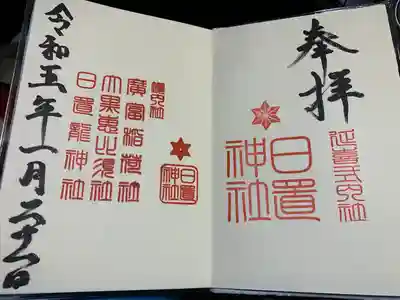 奉拝
延喜式内社
日置神社
境内社
廣富稲荷社
大黒恵比須社
日置龍神社
日置神社
令和五年一月二十六日